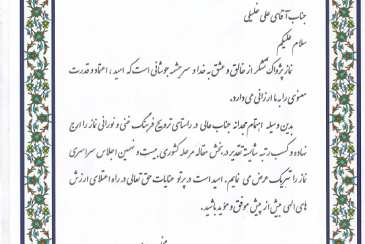 جناب آقای علی خلیلی
سلام علیکم
نماز پژواک تشکر از خالق و عشق به خدا و سرچشمه جوشانی است که امید، اعتماد و قدرت
معنوی را به ما ارزانی می دارد.
بدین وسیله اهتمام مجدانه جناب عالی در راستای ترویج فرهنگ غنی و نورانی نماز را ارج
نهاده و کسب رتبه شایسته تقدیر در بخش مقاله مرحله کشوری بیست و نهمین اجلاس سراسری
نماز را تبریک عرض می نمایم. امید است در پرتو عنایات حق تعالی در راه اعتلای ارزش
های الهی بیش از پیش موفق و مؤید باشید.